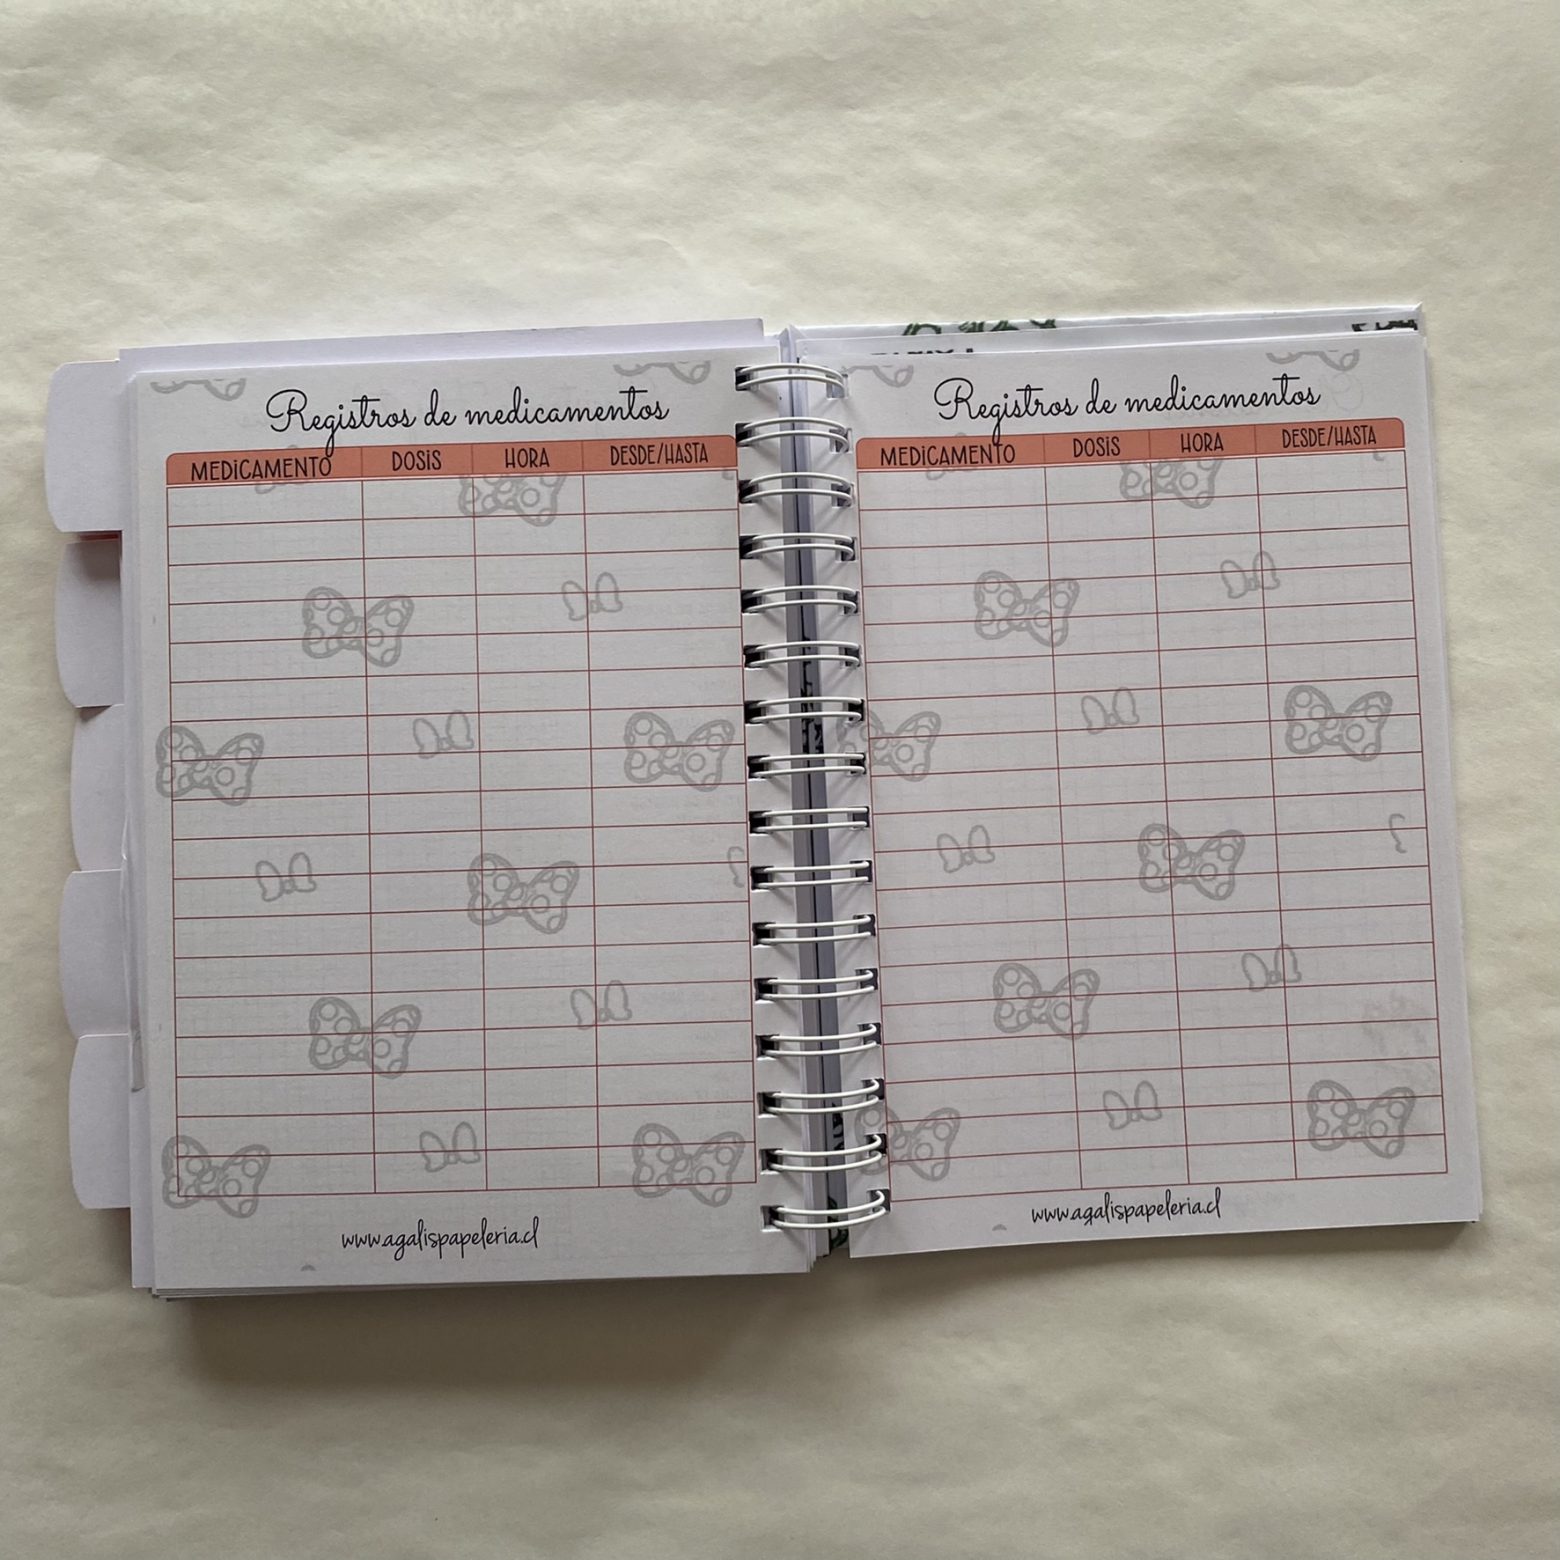 Registros de medicamentos
MEDICAMENTO DOSIS HORA DESDE/HASTA
www.agalispapeleria.cl
Registros de medicamentos
MEDICAMENTO DOSIS HORA DESDE/HASTA
www.agalispapeleria.cl